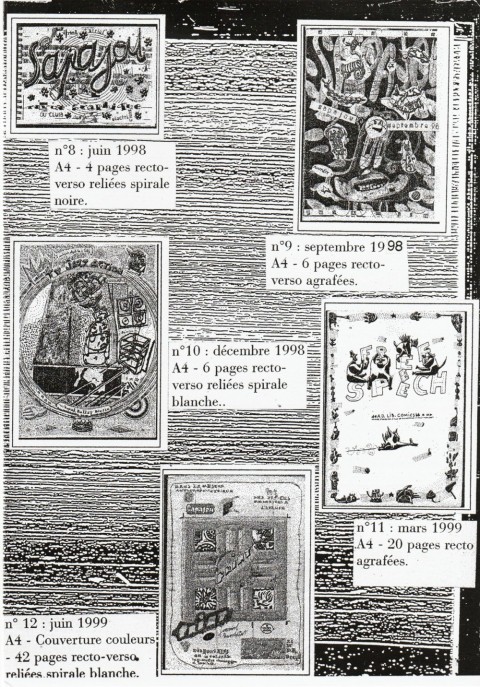 Sapajou
n°8 : juin 1998
A4 - 4 pages recto-
verso reliées spirale
noire.
septembre 98
n°9 : septembre 1998
A4 - 6 pages recto-
verso agrafées.
n°10 : décembre 1998
A4 - 6 pages recto-
verso reliées spirale
blanche..
FREE
SPEECH
n°11 : mars 1999
A4 - 20 pages recto
agrafées.
Sapajou
n° 12 : juin 1999
A4 - Couverture couleurs
- 42 pages recto-verso
reliées spirale blanche.